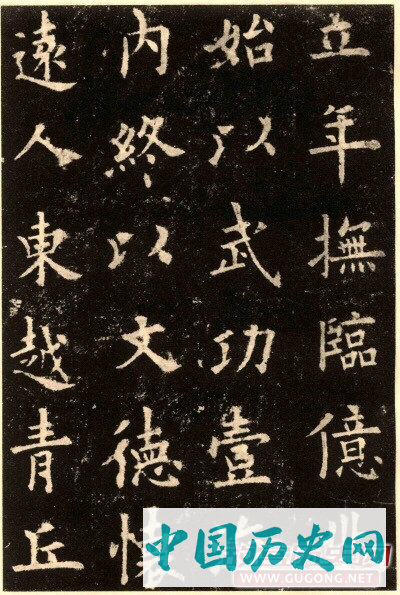 立年撫臨億
始以武功壹
内終以文德懷
遠人東越青丘
中国历史网
WWW.GUGONG.NET